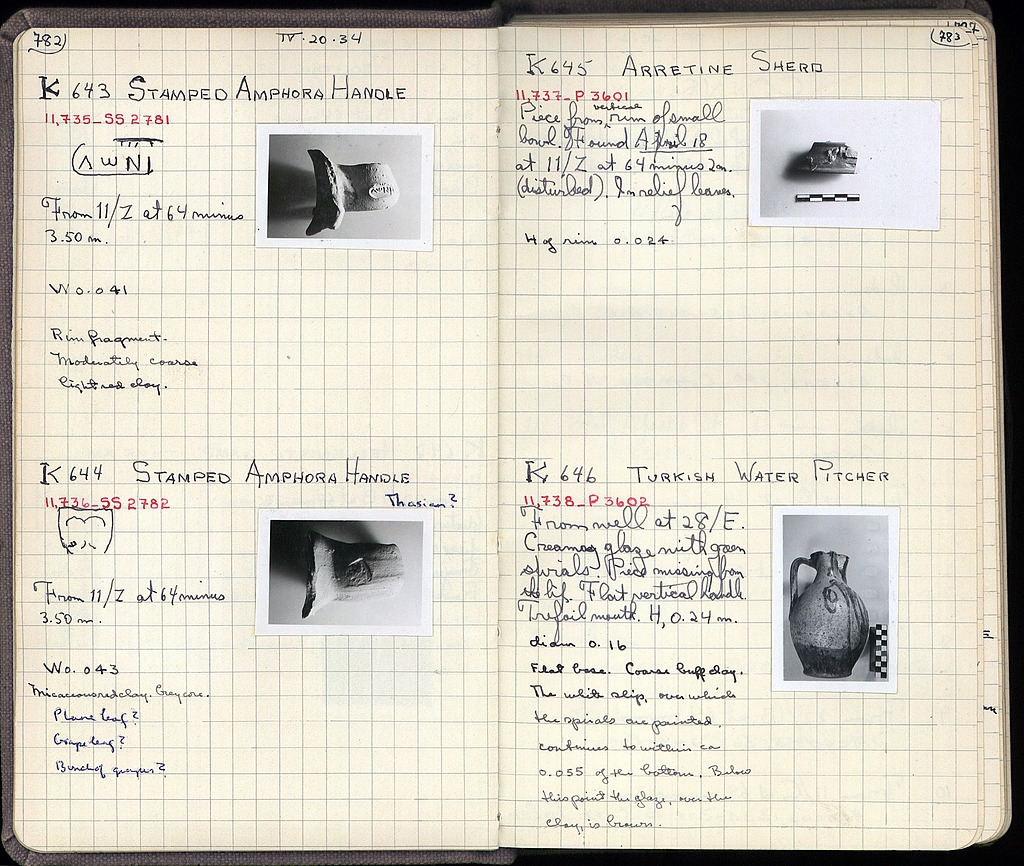 782
IV·20·34
K 643 STAMPED AMPHORA HANDLE
11,735_SS 2781
From 11/Z at 64 minus
3.50 m.
W 0.041
Rim fragment.
Moderately coarse
light red clay.
K 644 STAMPED AMPHORA HANDLE
11,736_SS 2782
Thasian?
From 11/Z at 64 minus
3.50 m.
W 0.043
Micaceous red clay. Grey core.
Plane leaf?
Grape leaf?
Bunch of grapes?
783
K 645 ARRETINE SHERD
11,737_P 3601
Piece from vertical rim of small
bowl. Found April 18
at 11/Z at 64 minus 2 m.
(disturbed). In relief leaves.
H of rim 0.024
K 646 TURKISH WATER PITCHER
11,738_P 3602
From well at 28/E.
Creamy glaze with green
spirals. Piece missing from
the lip. Flat vertical handle.
Trefoil mouth. H, 0.24 m.
diam 0.16
Flat base. Coarse buff clay.
The white slip, over which
the spirals are painted,
continues to within ca
0.055 of the bottom. Below
this point the glaze, over the
clay, is brown.